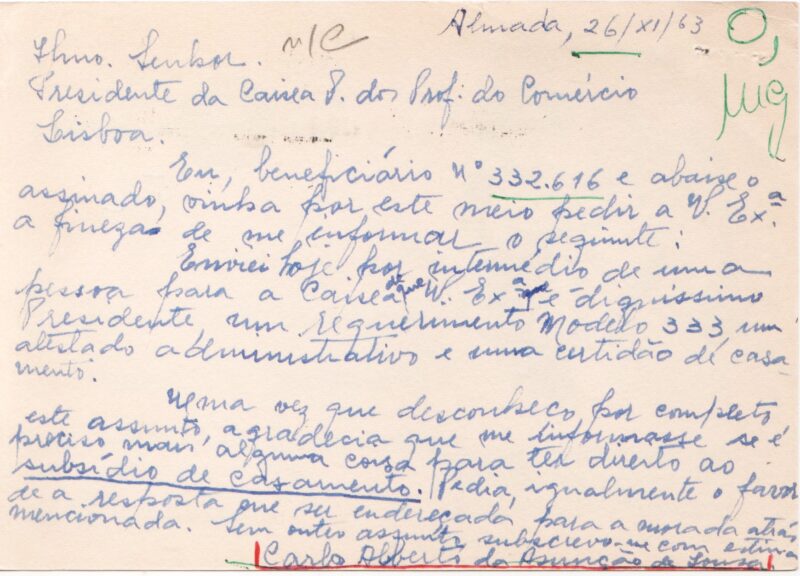 Almada, 26/XI/63
O,
MG
n/C
Ilmo. Senhor.
Presidente da Caixa P. dos Prof. do Comércio
Lisboa.
Eu, beneficiário Nº 332.616 e abaixo
assinado, vinha por este meio pedir a V. Ex.ª
a fineza de me informar o seguinte:
Enviei hoje por intermédio de uma
pessoa para a Caixa de que V. Ex.ª é digníssimo
Presidente, um requerimento Modelo 333 um
atestado administrativo e uma certidão de casa-
mento.
Uma vez que desconheço por completo
este assunto, agradecia que me informasse se é
preciso mais alguma coisa para ter direito ao
subsídio de casamento. Pedia, igualmente o favor
de a resposta que ser endereçada para a morada atrás
mencionada. Sem outro assunto subscrevo-me com estima
Carlo Alberto da Assunção de Sousa